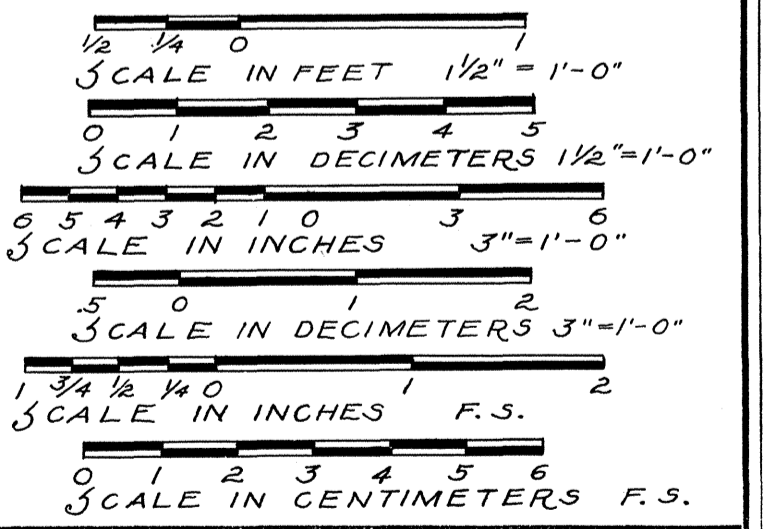 1/2 1/4 0 1
SCALE IN FEET 1 1/2" = 1'-0"
0 1 2 3 4 5
SCALE IN DECIMETERS 1 1/2"=1'-0"
6 5 4 3 2 1 0 3 6
SCALE IN INCHES 3"=1'-0"
.5 0 1 2
SCALE IN DECIMETERS 3"=1'-0"
1 3/4 1/2 1/4 0 1 2
SCALE IN INCHES F.S.
0 1 2 3 4 5 6
SCALE IN CENTIMETERS F.S.